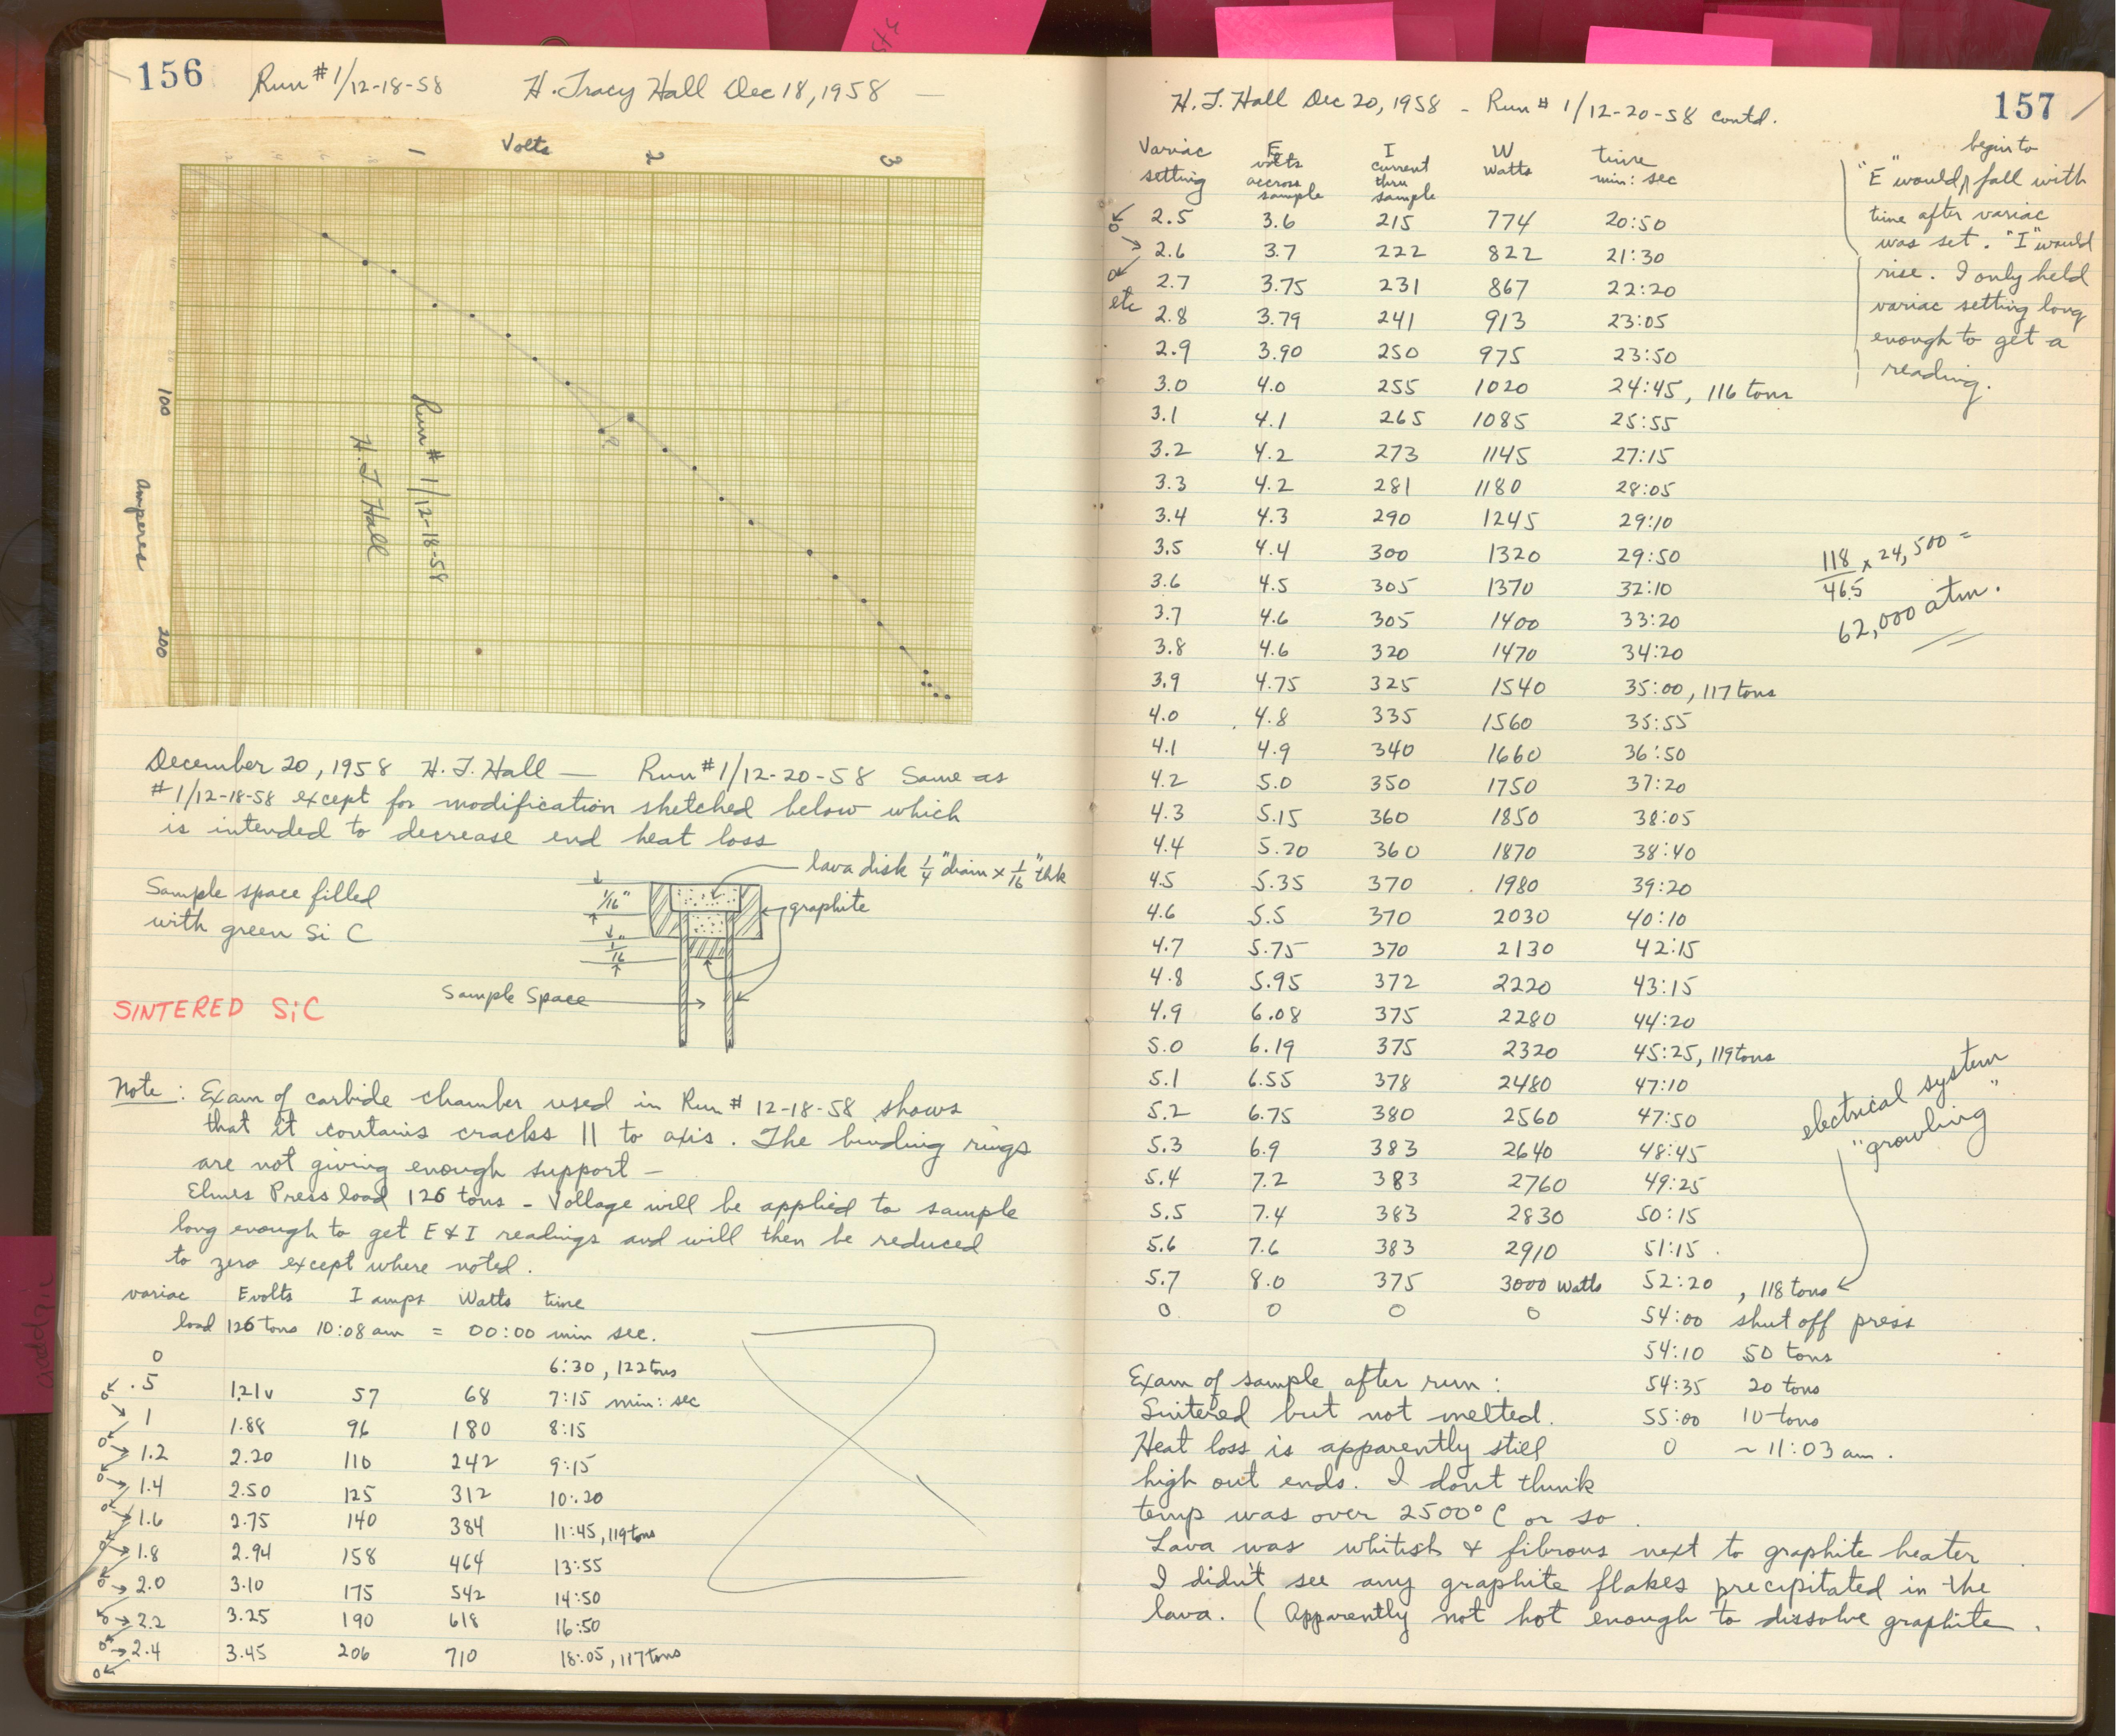 156 Run #1/12-18-58 H. Tracy Hall Dec 18, 1958 —
Volts
1 2 3
100
amperes
200
Run # 1/12-18-58
H. T. Hall
December 20, 1958 H. T. Hall — Run #1/12-20-58 Same as
#1/12-18-58 except for modification sketched below which
is intended to decrease end heat loss
lava disk 1/4" diam x 1/16" thk
Sample space filled
with green Si C
1/16"
graphite
1/16"
Sample Space
SINTERED SiC
Note: Exam of carbide chamber used in Run # 12-18-58 shows
that it contains cracks || to axis. The binding rings
are not giving enough support —
Elmes Press load 126 tons - Voltage will be applied to sample
long enough to get E & I readings and will then be reduced
to zero except where noted.
variac E volts I amps Watts time
load 126 tons 10:08 am = 00:00 min sec.
0 6:30, 122 tons
.5 1.21v 57 68 7:15 min: sec
1 1.88 96 180 8:15
1.2 2.20 110 242 9:15
1.4 2.50 125 312 10:20
1.6 2.75 140 384 11:45, 119 tons
1.8 2.94 158 464 13:55
2.0 3.10 175 542 14:50
2.2 3.25 190 618 16:50
2.4 3.45 206 710 18:05, 117 tons
H. T. Hall Dec 20, 1958 - Run # 1/12-20-58 contd. 157
Variac setting E volts accross sample I current thru sample W Watts time min: sec
2.5 3.6 215 774 20:50
2.6 3.7 222 822 21:30
2.7 3.75 231 867 22:20
etc
2.8 3.79 241 913 23:05
2.9 3.90 250 975 23:50
3.0 4.0 255 1020 24:45, 116 tons
3.1 4.1 265 1085 25:55
3.2 4.2 273 1145 27:15
3.3 4.2 281 1180 28:05
3.4 4.3 290 1245 29:10
3.5 4.4 300 1320 29:50
3.6 4.5 305 1370 32:10
3.7 4.6 305 1400 33:20
3.8 4.6 320 1470 34:20
3.9 4.75 325 1540 35:00, 117 tons
4.0 4.8 335 1560 35:55
4.1 4.9 340 1660 36:50
4.2 5.0 350 1750 37:20
4.3 5.15 360 1850 38:05
4.4 5.20 360 1870 38:40
4.5 5.35 370 1980 39:20
4.6 5.5 370 2030 40:10
4.7 5.75 370 2130 42:15
4.8 5.95 372 2220 43:15
4.9 6.08 375 2280 44:20
5.0 6.19 375 2320 45:25, 119 tons
5.1 6.55 378 2480 47:10
5.2 6.75 380 2560 47:50
5.3 6.9 383 2640 48:45
5.4 7.2 383 2760 49:25
5.5 7.4 383 2830 50:15
5.6 7.6 383 2910 51:15
5.7 8.0 375 3000 Watts 52:20, 118 tons
0 0 0 0 54:00 shut off press
54:10 50 tons
54:35 20 tons
55:00 10 tons
0 ~ 11:03 am.
begin to
"E" would fall with
time after variac
was set. "I" would
rise. I only held
variac setting long
enough to get a
reading.
118/46.5 x 24,500 =
62,000 atm.
electrical system
"growling"
Exam of sample after run:
Sintered but not melted.
Heat loss is apparently still
high out ends. I don't think
temp was over 2500° C or so.
Lava was whitish & fibrous next to graphite heater
I didn't see any graphite flakes precipitated in the
lava. (Apparently not hot enough to dissolve graphite.